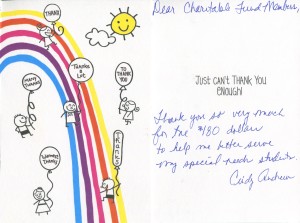 THANKS
Thanks
A
Lot
TO
THANK
YOU
MANY
THANKS
THANKS
Dear Charitable Fund Members,
JUST CAN'T THANK YOU
ENOUGH!
Thank you so very much
for the $180 dollars
to help me better serve
my special needs students.
Cindy